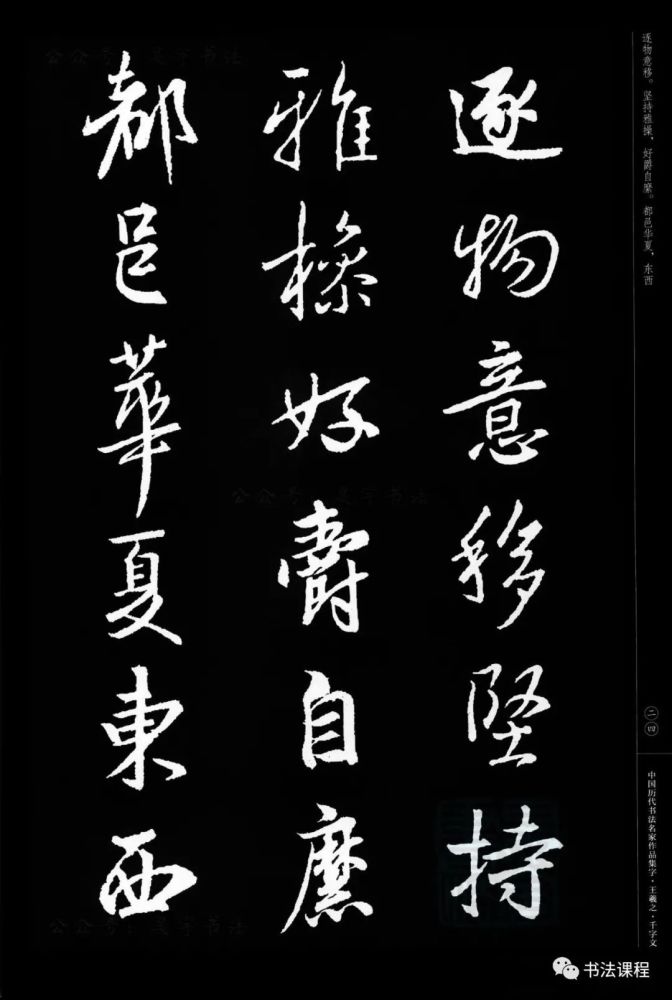 逐物意移堅持
雅操好爵自縻
都邑華夏東西
逐物意移。坚持雅操，好爵自縻。都邑华夏，东西
二四
中国历代书法名家作品集字·王羲之·千字文
书法课程